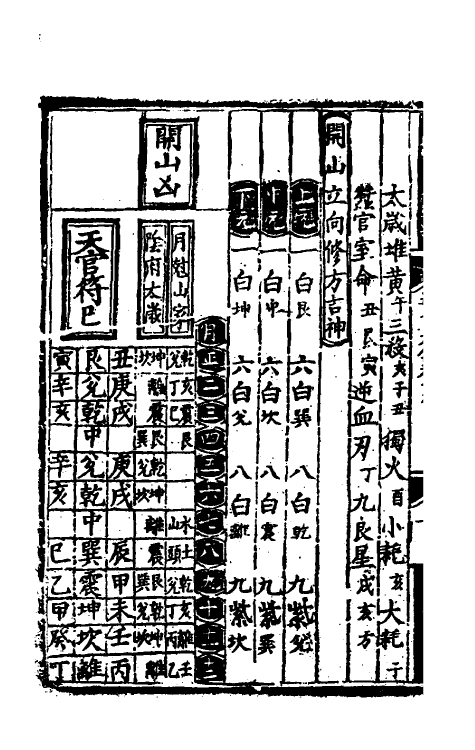 太歲堆黃午三殺亥子丑 獨火酉小耗亥大耗子
蠶官室命丑艮寅逆血刃丁九良星戌亥方
開山立向修方吉神
上元 一白艮 六白巽 八白乾 九紫兌
中元 一白中 六白坎 八白震 九紫巽
下元 一白坤 六白兌 八白離 九紫坎
開山凶
月剋山家
陰府太歲
天官符巳
月正二三四五六七八九十十一十二
乾亥 震艮 水土 乾亥 離壬
兌丁巳 山頭 兌丁丙乙
坤離震艮乾坤離震艮乾坤離
坎 巽兌坎 巽兌坎
丑庚戌 庚戌 辰甲未壬丙
艮兌乾中兌乾中巽震坤坎離
寅辛亥 辛亥 巳乙甲癸丁